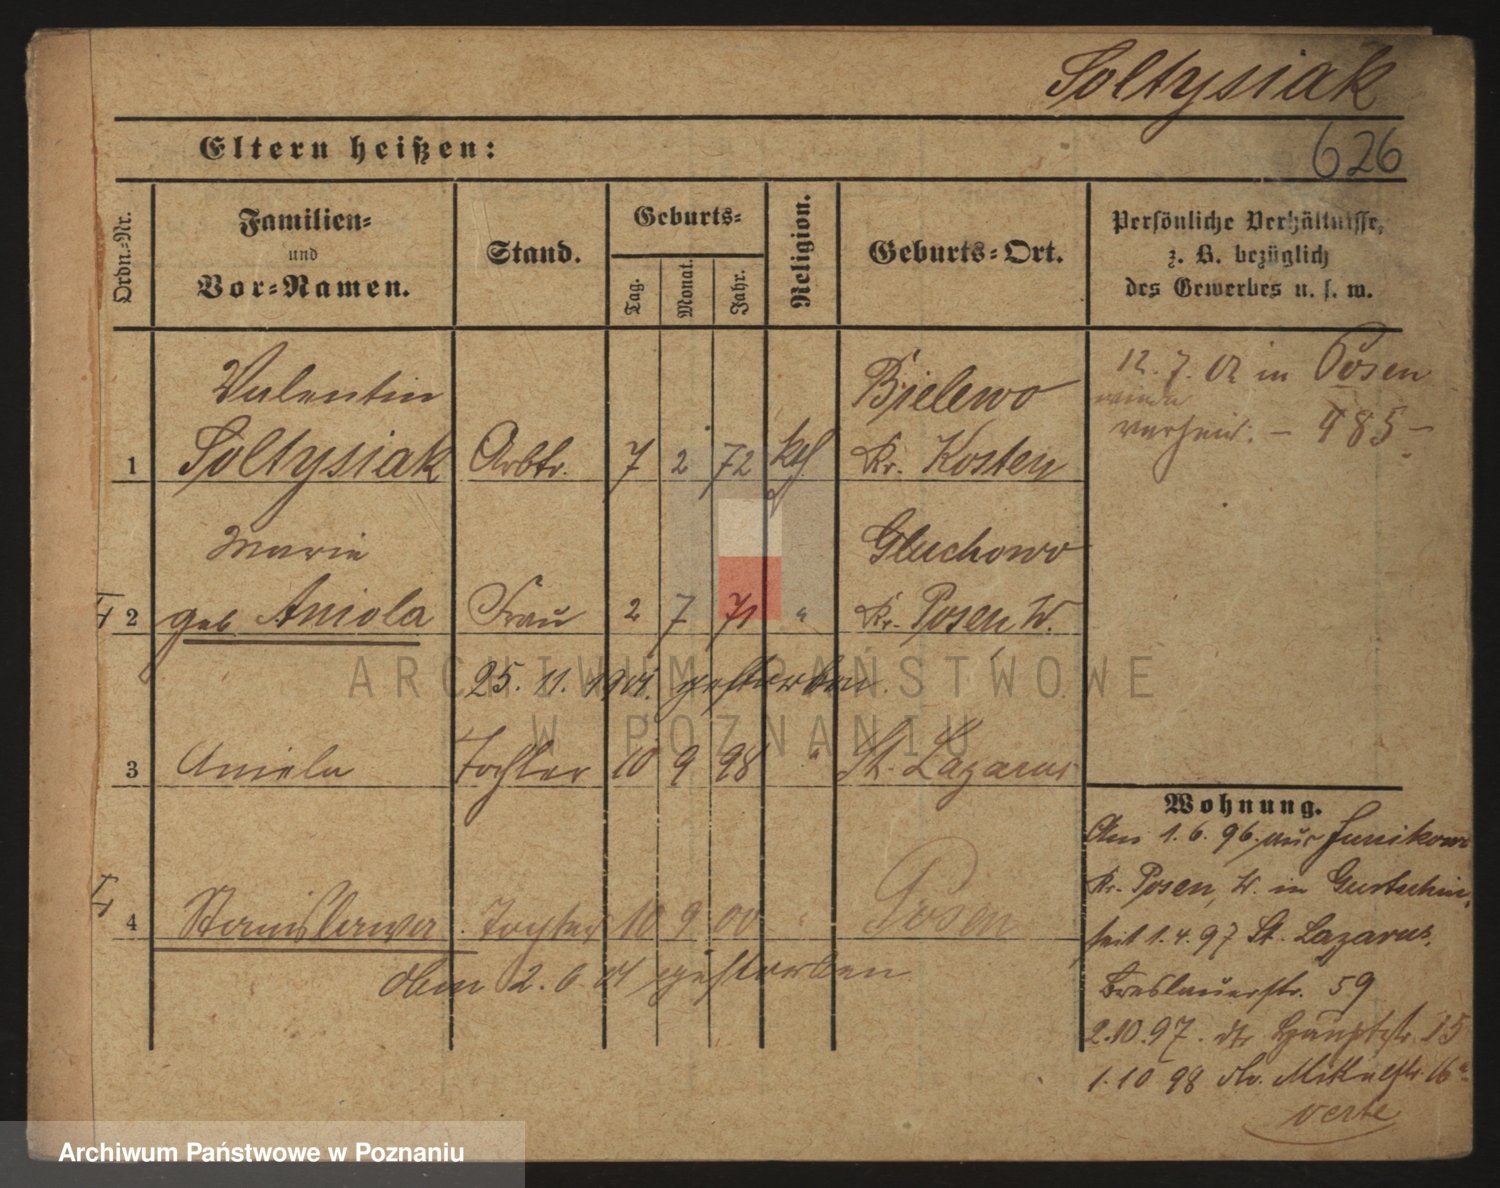 Soltysiak
626
Eltern heißen:
Ordn.-Nr.
Familien-
und
Vor-Namen.
Stand.
Geburts-
Tag.
Monat.
Jahr.
Religion.
Geburts-Ort.
Persönliche Verhältnisse,
z. B. bezüglich
des Gewerbes u. s. w.
Valentin Bielewo
1 Soltysiak Arbtr. 7 2 72 kath Kr. Kosten
12. 7. 02 in Posen
wieder
verheir. – 485 –
Marie Gluchowo
2 geb Aniola Frau 2 7 71 " Kr. Posen, W.
25. 11. 1901. gestorben
3 Aniela Tochter 10 9 98 " St. Lazarus
4 Stanislawa Tochter 10 9 00 " Posen
2. 6. 01 gestorben
Wohnung.
Am 1. 6. 96. aus Junikowo
Kr. Posen, W. in Gurtschin,
seit 1. 4. 97 St. Lazarus,
Breslauerstr. 59
2. 10. 97. Hauptstr. 15
1. 10 98 do. 16a
verte
ARCHIWUM PAŃSTWOWE
W POZNANIU
Archiwum Państwowe w Poznaniu